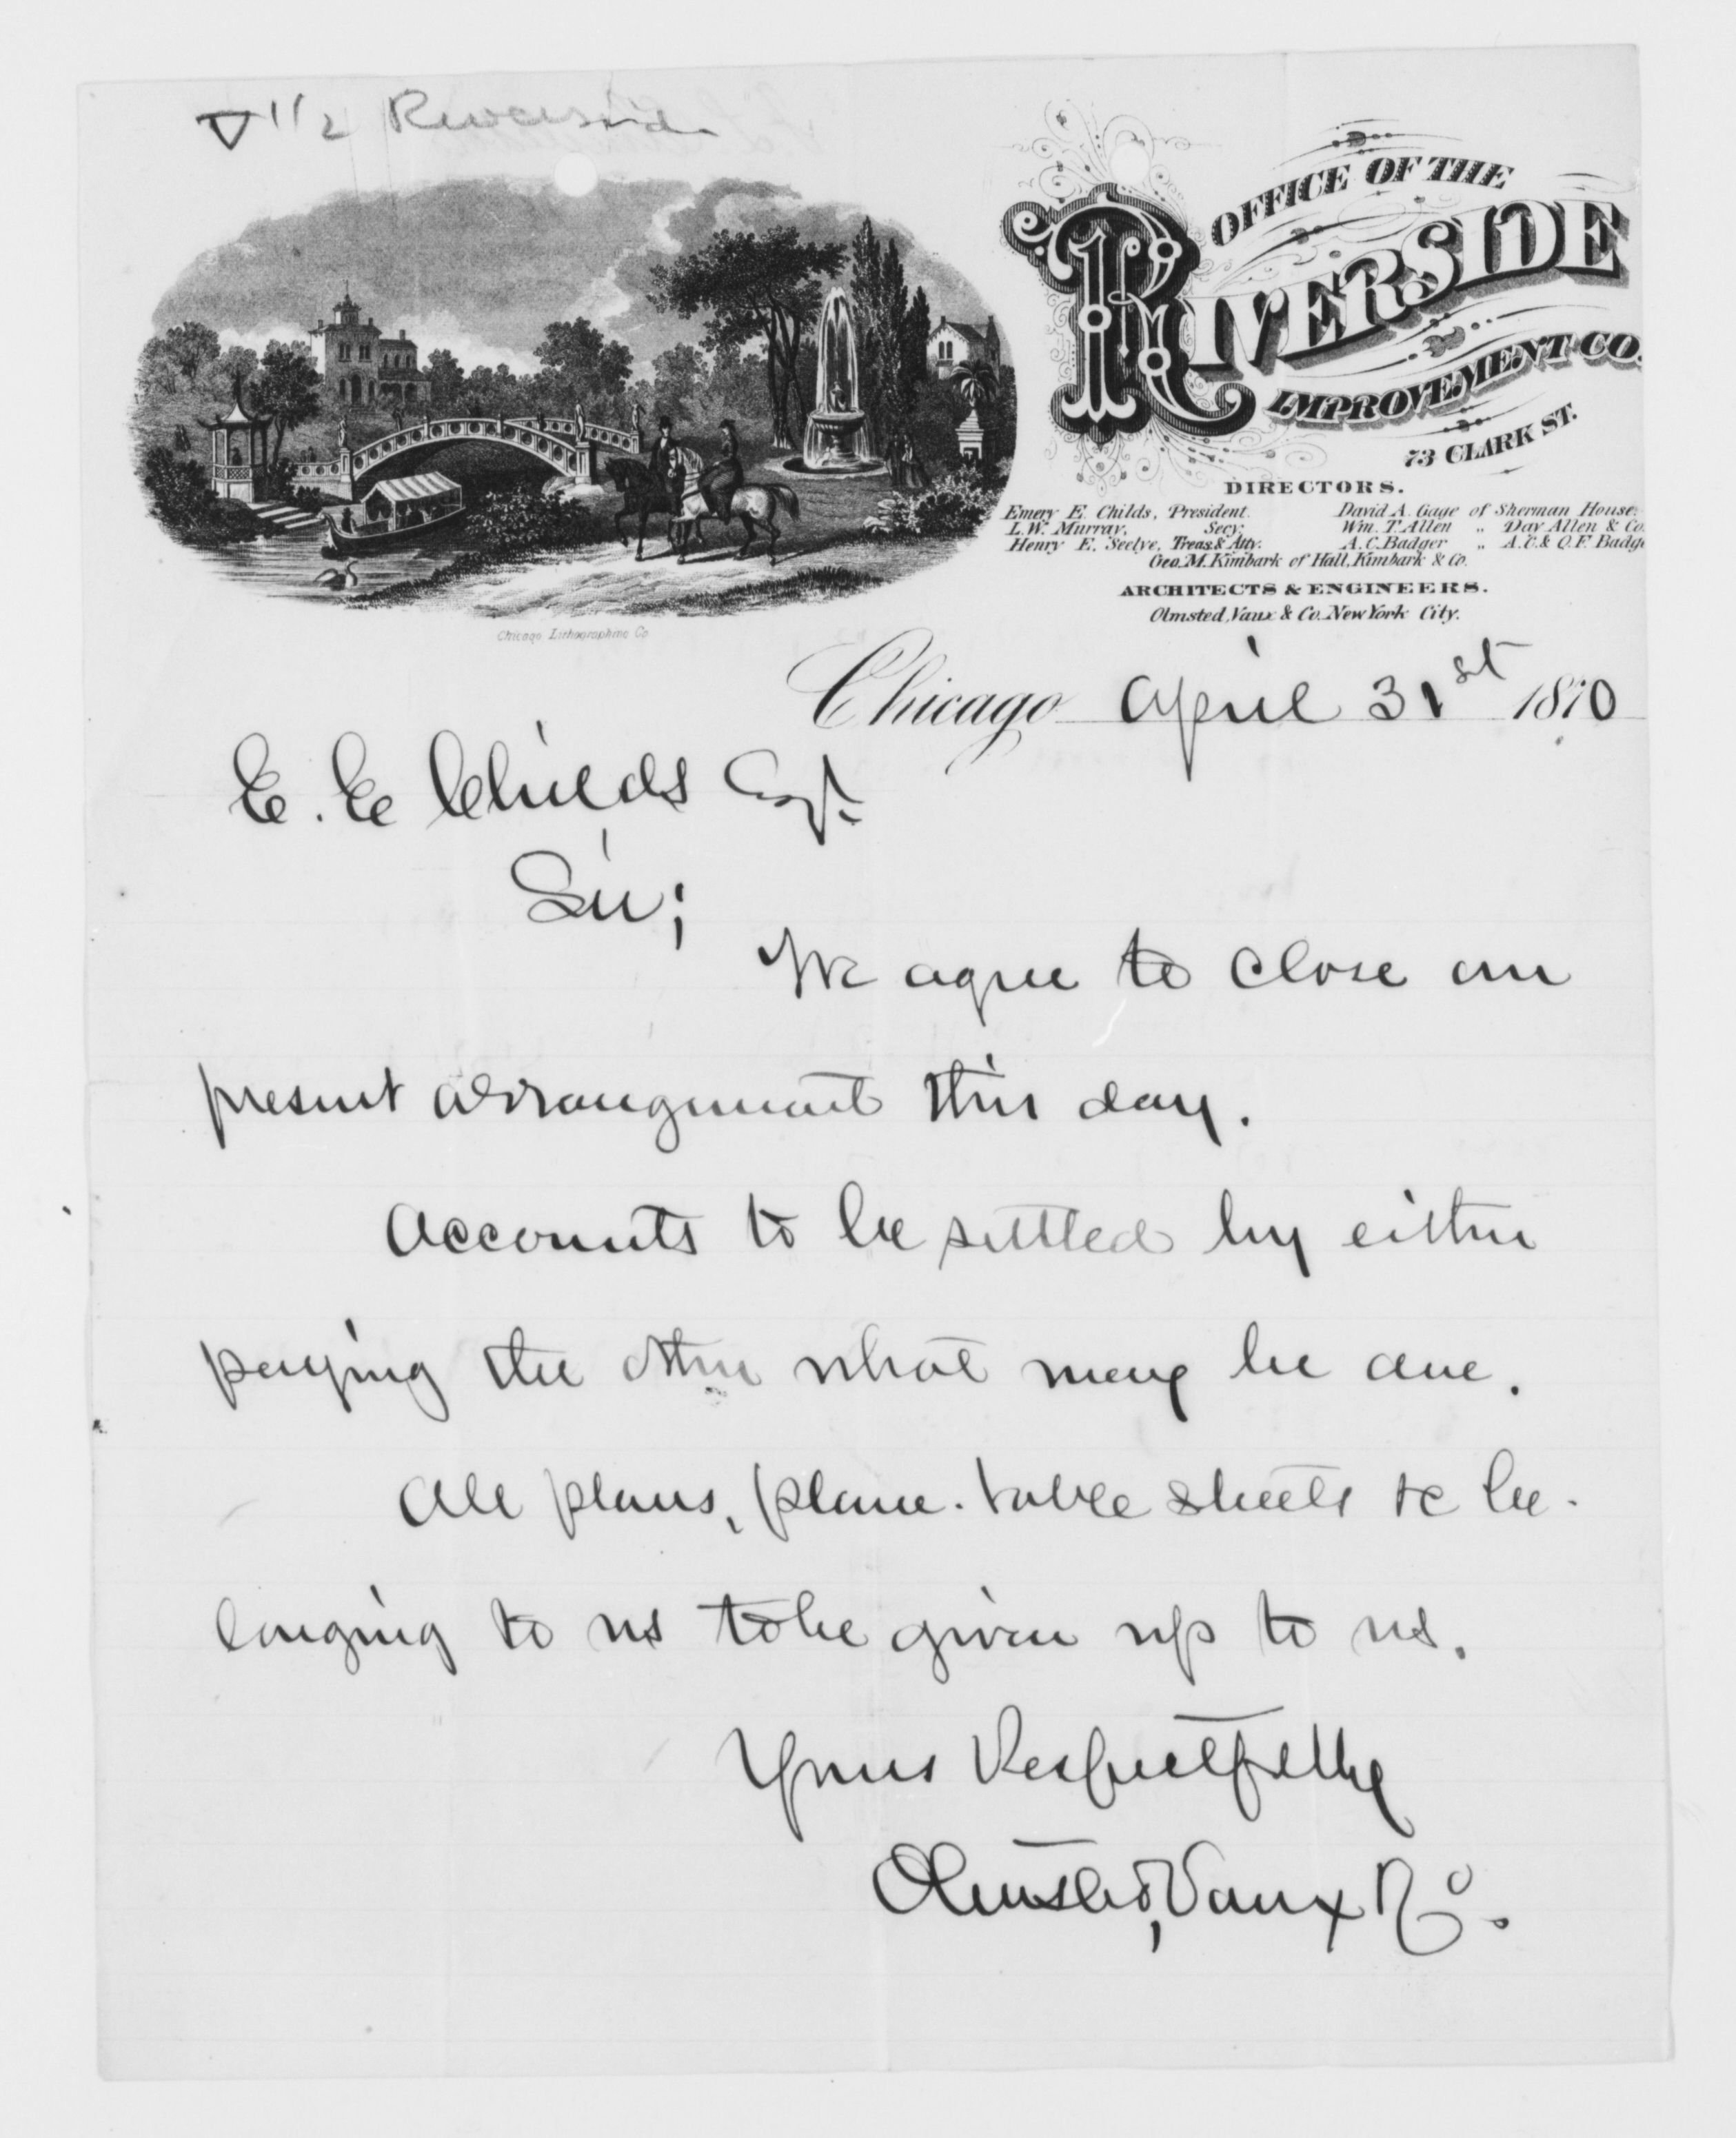 1/2 Riverside
OFFICE OF THE
RIVERSIDE
IMPROVEMENT CO.
73 CLARK ST.
DIRECTORS.
Emery E. Childs, President. David A. Gage of Sherman House.
L.W. Murray, Secy. Wm. T. Allen „ Day Allen & Co.
Henry E. Seelye, Treas & Atty. A.C. Badger „ A.C. & O.F. Badge
Geo. M. Kimbark of Hall, Kimbark & Co.
ARCHITECTS & ENGINEERS.
Olmsted, Vaux & Co. New York City.
Chicago Lithographing Co
Chicago April 31st 1870
E. E Childs Esqr.
Sir;
We agree to close our
present arrangement this day.
Accounts to be settled by either
paying the other what may be due.
All plans, plane-table sheets &c be-
longing to us to be given up to us.
Yours Respectfully
Olmsted, Vaux & Co.